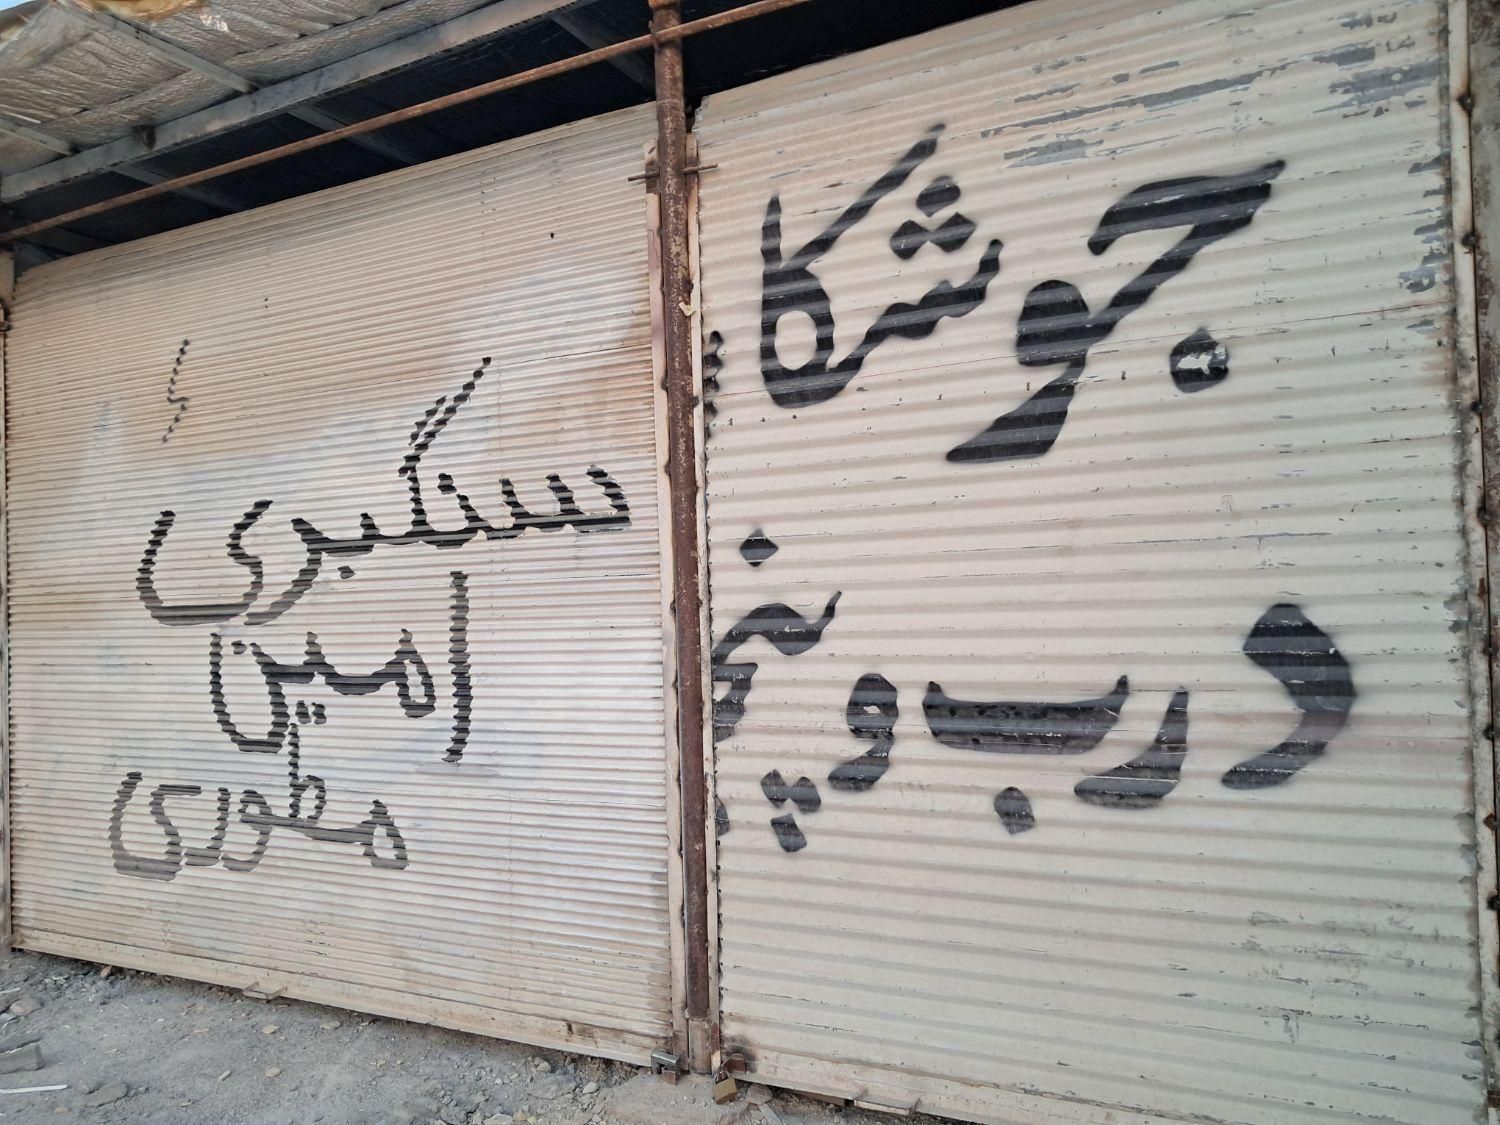 جوشکا
درب و پنج
سنگبری
امین
مطوری